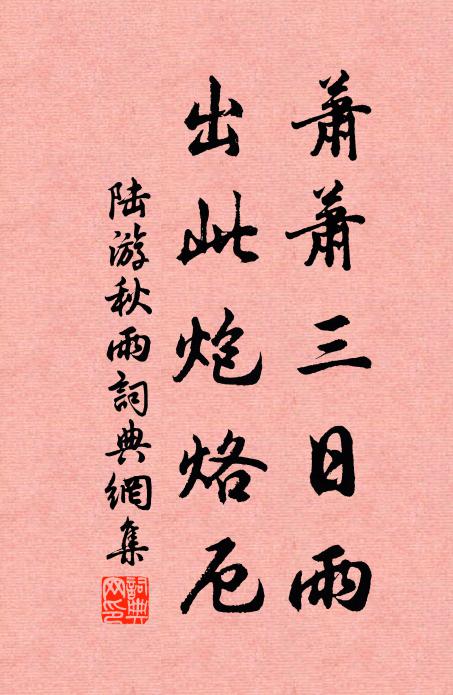 蕭蕭三日雨
出此炮烙厄
陆游秋雨詞典網集
詞典网印